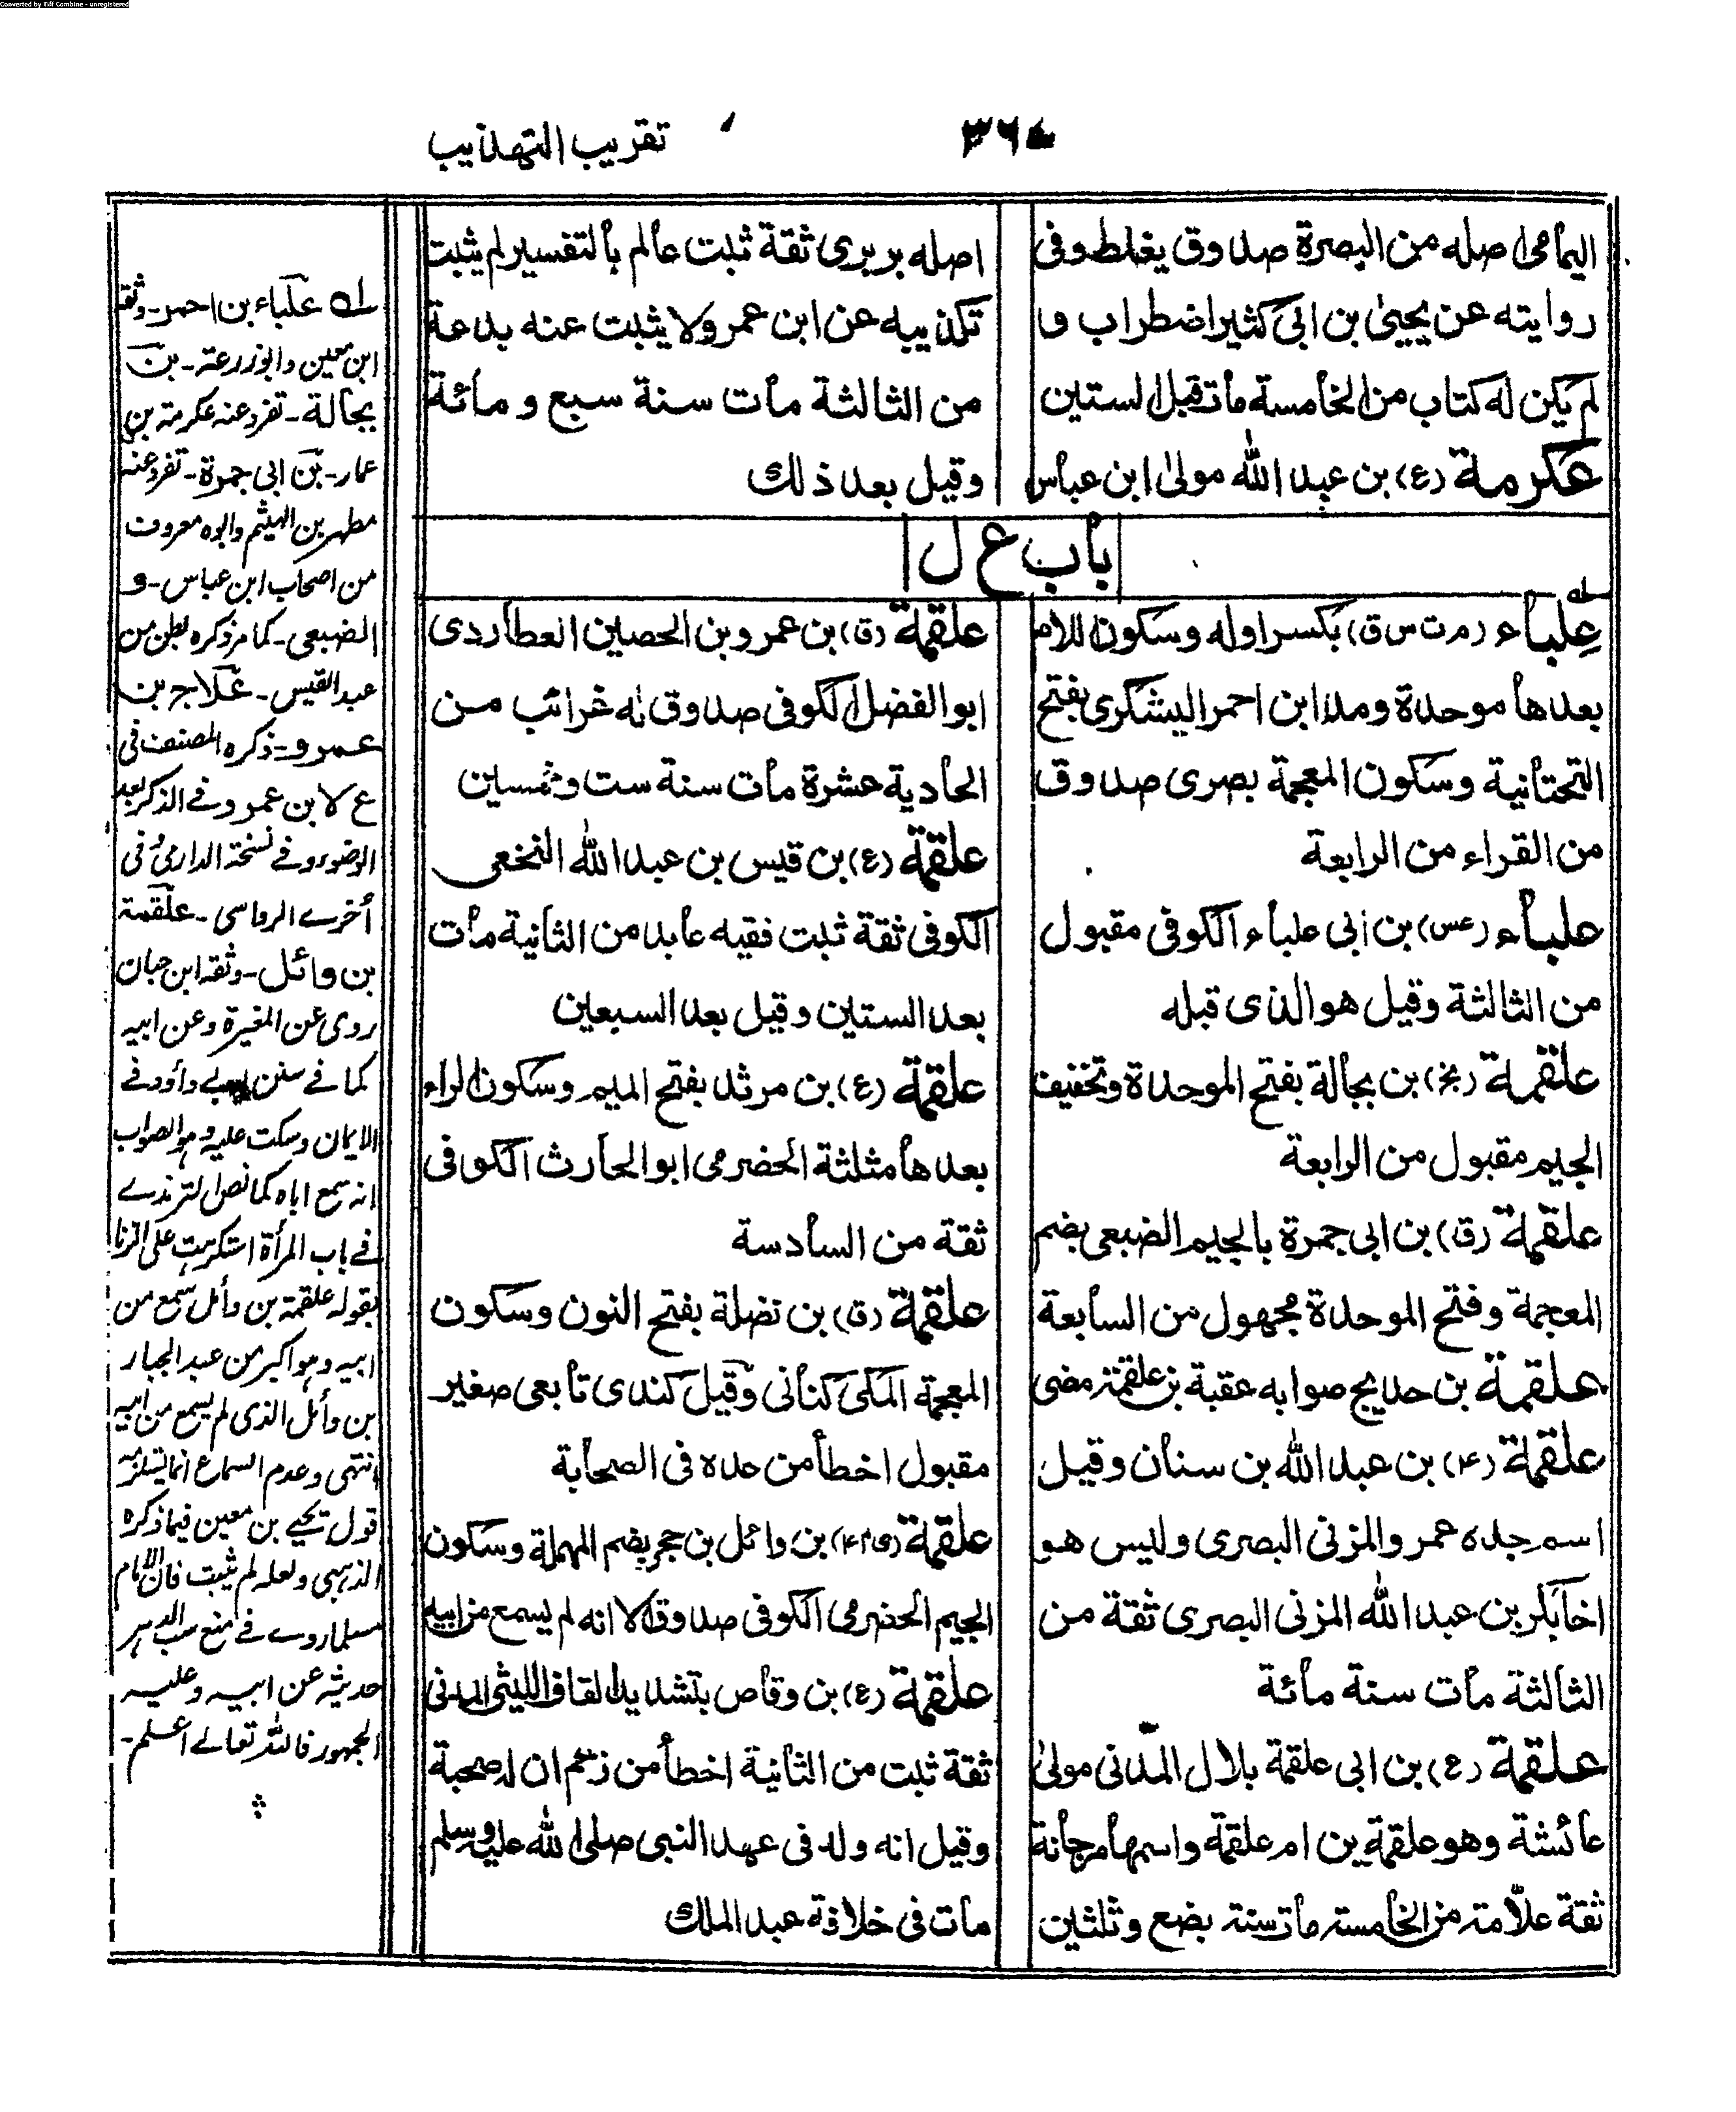 Converted by Tiff Combine - unregistered
تقريب التهذيب
اليمامى اصله من البصرة صدوق يغلط وفى
روايته عن يحيىٰ بن ابى كثير اضطراب و
لم يكن له كتاب من الخامسة مات قبل الستين
عكرمة (ع) بن عبد الله مولىٰ ابن عباس
اصله بربرى ثقة ثبت عالم بالتفسير لم يثبت
تكذيبه عن ابن عمر ولا يثبت عنه بدعة
من الثالثة مات سنة سبع و مائة
وقيل بعد ذلك
باب ع ل
عِلباء (م ت س ق) بكسر اوله وسكون اللام
بعدها موحدة ومد ابن احمر اليشكرى بفتح
التحتانية وسكون المعجمة بصرى صدوق
من القراء من الرابعة
علباء (عس) بن ابى علباء الكوفى مقبول
من الثالثة وقيل هو الذى قبله
علقمة (بخ) بن بجالة بفتح الموحدة وتخفيف
الجيم مقبول من الرابعة
علقمة (ق) بن ابى جمرة بالجيم الضبعى بضم
المعجمة وفتح الموحدة مجهول من السابعة
علقمة بن حديج صوابه عقبة بن علقمة مضى
علقمة (۴) بن عبد الله بن سنان وقيل
اسم جده عمرو المزنى البصرى وليس هو
اخا بكر بن عبد الله المزنى البصرى ثقة من
الثالثة مات سنة مائة
علقمة (ع) بن ابى علقمة بلال المدنى مولىٰ
عائشة وهو علقمة بن ام علقمة واسمها مرجانة
ثقة علّامة من الخامسة مات سنة بضع وثلثين
علقمة (ق) بن عمرو بن الحصين العطاردى
ابو الفضل الكوفى صدوق له غرائب من
الحادية عشرة مات سنة ست وخمسين
علقمة (ع) بن قيس بن عبد الله النخعى
الكوفى ثقة ثبت فقيه عابد من الثانية مات
بعد الستين وقيل بعد السبعين
علقمة (ع) بن مرثد بفتح الميم وسكون الراء
بعدها مثلثة الحضرمى ابو الحارث الكوفى
ثقة من السادسة
علقمة (ق) بن نضلة بفتح النون وسكون
المعجمة المكى كنانى وقيل كندى تابعى صغير
مقبول اخطأ من عده فى الصحابة
علقمة بن وائل بن حجر بضم المهملة وسكون
الجيم الحضرمى الكوفى صدوق الا انه لم يسمع من ابيه
علقمة (ع) بن وقاص بتشديد القاف الليثى المدنى
ثقة ثبت من الثانية اخطأ من زعم ان له صحبة
وقيل انه ولد فى عهد النبى صلى الله عليه وسلم
مات فى خلافة عبد الملك
له علباء بن احمر ـ وثقه
ابن معين وابو زرعة ـ بن
بجالة ـ تفرد عنه عكرمة بن
عمار ـ بن ابى جمرة ـ تفرد عنه
مطهر بن الهيثم وابوه معروف
من اصحاب ابن عباس ـ و
الضبعى ـ كما مر ذكره بطن من
عبد القيس ـ علاج بن
عمرو ـ ذكره المصنف فى
ع لا بن عمرو فى الذكر بعد
الوضوء وفى نسخة الدارمى فى
أخرى الرواسى ـ علقمة
بن وائل ـ وثقه ابن حبان
روى عن المغيرة وعن ابيه
كما فى سنن ابى داود فى
الايمان وسكت عليه وهو الصواب
انه سمع اباه كما نص الترمذى
فى باب المرأة استكرهت على الزنا
بقوله علقمة بن وائل سمع من
ابيه وهو اكبر من عبد الجبار
بن وائل الذى لم يسمع من ابيه
انتهى وعدم السماع انما
قول يحيى بن معين فيما ذكره
الذهبى ولعله لم يثبت فان الامام
مسلما روى فى منع سب الدهر
حديثه عن ابيه وعليه
الجمهور فالله تعالى اعلم ـ